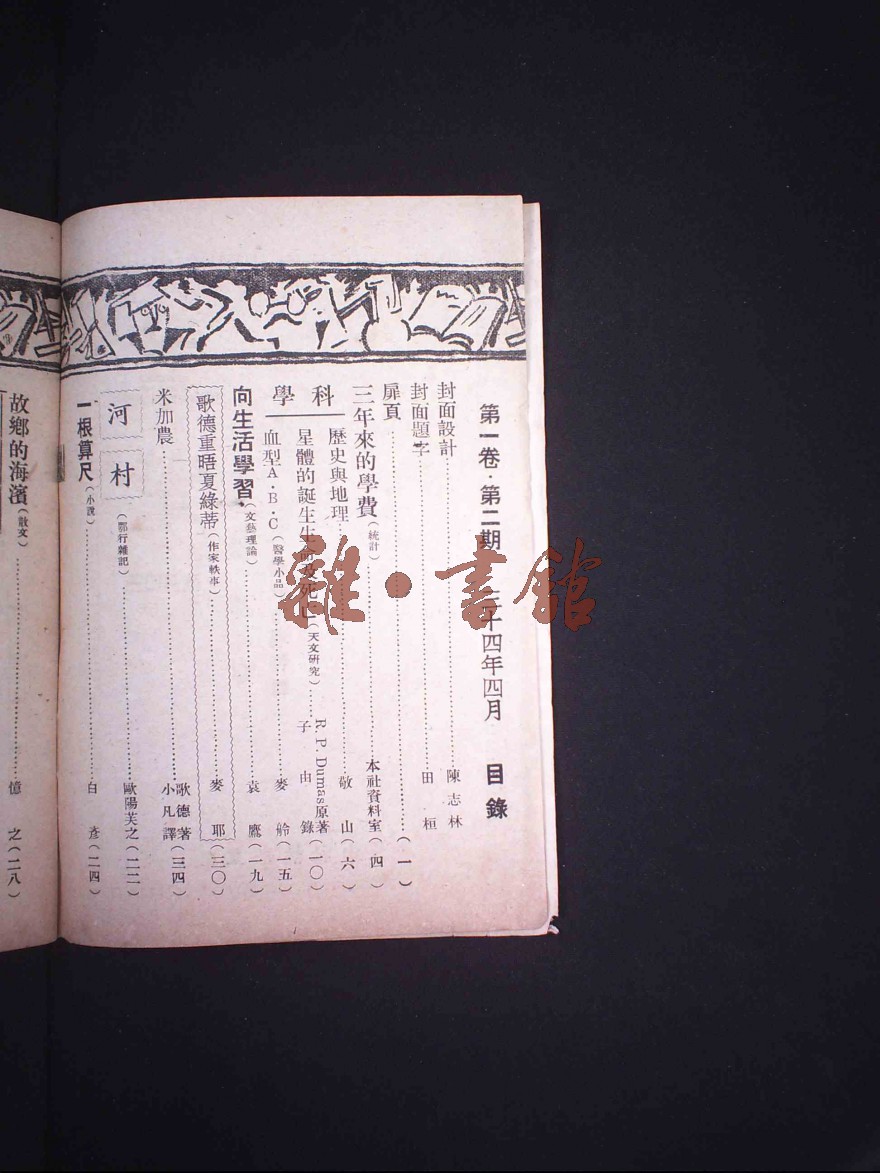 第一卷·第二期 三十四年四月 目錄
封面設計 陳志林
封面題字 田桓
扉頁 (一)
三年來的學費(統計) 本社資料室(四)
科學
歷史與地理 敬山(六)
星體的誕生生命及死亡(天文研究) R. P. Dumas原著 子由錄(一〇)
血型A·B·C(醫學小品) 麥舲(一五)
向生活學習·(文藝理論) 袁鷹(一九)
歌德重晤夏綠蒂(作家軼事) 麥耶(三〇)
米加農 歌德著 小凡譯(三四)
河村(鄂行雜記) 歐陽芙之(二二)
一根算尺(小說) 白彥(二四)
故鄉的海濱(散文) 憶之(二八)
雜·書館